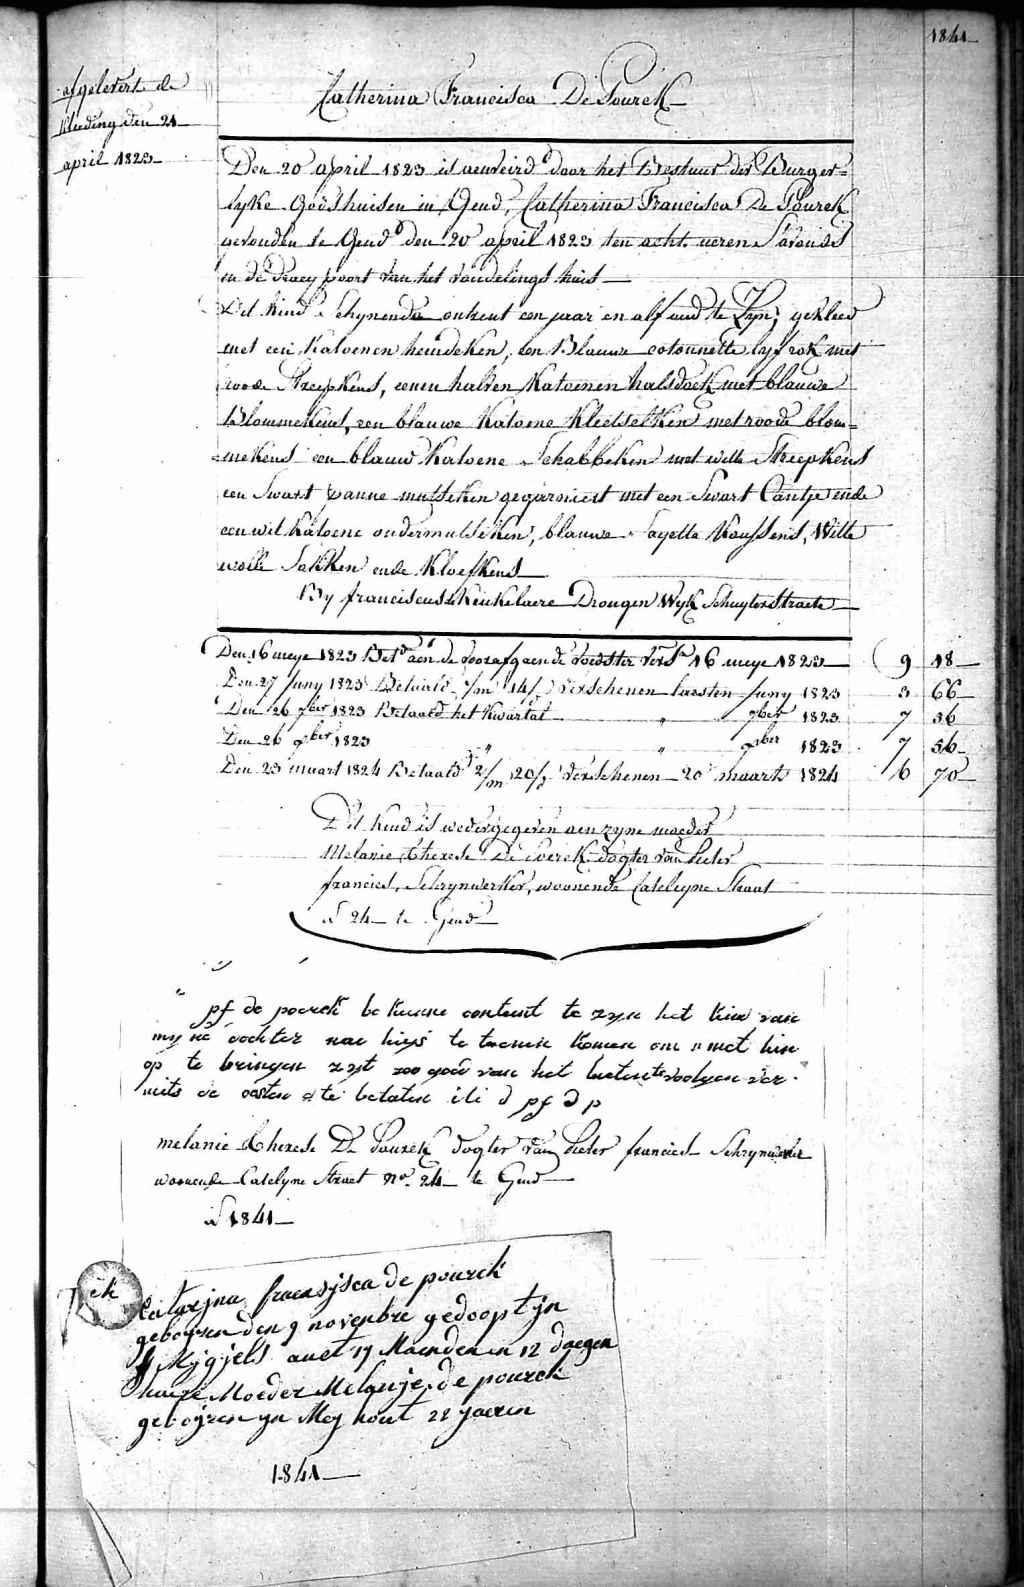 1841
afgelevert de
kleeding den 21
april 1823
Catherina Francisca De Pourck
Den 20 april 1823 is aenveird door het Bestuer der Burger=
lyke Godshuisen in Gend, Catherina Francisca De Pourck
gevonden te Gend den 20 april 1823 ten acht ueren S'avonds
in de draey poort van het vondelings huis
Dit kind Schynende ontrent een jaar en alf oud te Zyn, gekleed
met een Katoenen hemdeken, een Blauwe cotonnette lyfrok met
roode Streepkens, eenen halven Katoenen halsdoek met blauwe
Blommekens, een blauwe Katoene Kleetseken met roode blom=
=mekens een blauw Katoene Schabbeken met witte Streepkens
een Swart panne mutseken gegarniert met een Swart Cantje ende
een wit Katoene ondermutseken, blauwe Sayette Koussens, Witte
wolle Sokken ende Kloefkens
By franciscus Keukelaere Drongen Wyk Schuyterstraete
Den 16 meye 1823 Betd aen de voorafgaende voedster vers. 16 meye 1823 9 18
Den 27 Juny 1823 Betaald /m 14/ verschenen laesten Juny 1823 3 66
Den 26 7ber 1823 Betaald het Kwartal " 7ber 1823 7 56
Den 26 9ber 1823 " " 9ber 1823 7 56
Den 23 maart 1824 Betaald 2/m 20/ verschenen 20 maart 1824 6 70
Dit Kind is wedergegeven aen zyne moeder
Melanie Therese De Poerck dogter van Pieter
francies, Schrynwerker, woonende Catelyne Straat
N 24 te Gend
pf de poerck bekenne content te zyn het kind van
myne dochter naer huys te nemen om met hun
op te bringen zyt zoo goed van het
mits de costen te betalen pf d p
melanie Therese De Pourck dogter van Pieter francies Schrynwerker
woonende Catelyne Straet No. 24 te Gend
N 1841
ek
Catarjna fransijsca de pourck
geboysen den 9 novenbre gedoopt yn
S Mygjels auet 17 Maenden en 12 daegen
haere Moeder Melanje de pourck
geboyren yn Mey hout 22 jaeren
1841